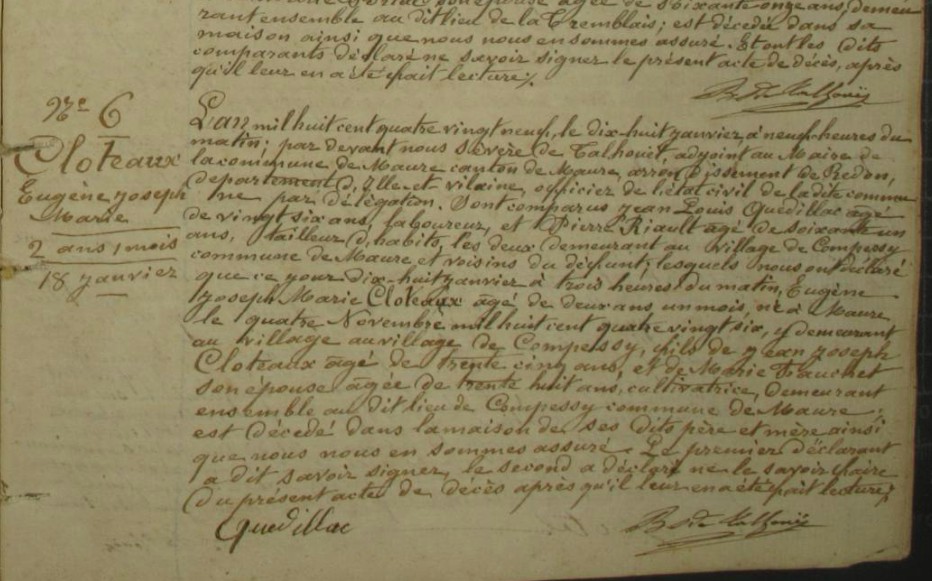 son épouse âgée de soixante onze ans, demeu
rant ensemble au dit lieu de la Tremblais; est décédé dans sa
maison ainsi que nous nous en sommes assuré. Et ont les dits
comparants déclaré ne savoir signer le présent acte de décès, après
qu'il leur en a été fait lecture;
Nº 6
Cloteaux
Eugène Joseph
Marie
2 ans 1 mois
18 janvier
L'an mil huit cent quatre vingt neuf, le dix-huit janvier, à neuf heures du
matin; par devant nous Sévère de Talhouët, adjoint au Maire de
la commune de Maure canton de Maure, arrondissement de Redon,
département d'Ille et vilaine, officier de l'état civil de la dite commu
ne par délégation. Sont comparus Jean Louis Quedillac âgé
de vingt six ans, laboureur, et Pierre Riault âgé de soixante un
ans, tailleur d'habits, les deux demeurant au village de Compessy
commune de Maure et voisins du défunt; lesquels nous ont déclaré
que ce jour dix-huit janvier à trois heures du matin, Eugène
Joseph Marie Cloteaux âgé de deux ans un mois, né à Maure
le quatre Novembre mil huit cent quatre vingt six, y demeurant
au village au village de Compessy, fils de Jean Joseph
Cloteaux âgé de trente cinq ans, et de Marie Fauchet
son épouse âgée de trente huit ans, cultivatrice, demeurant
ensemble au dit lieu de Compessy commune de Maure;
est décédé dans la maison de ses dits père et mère ainsi
que nous nous en sommes assuré. Le premier déclarant
a dit savoir signer, le second a déclaré ne le savoir faire
du présent acte de décès après qu'il leur en a été fait lecture;
Quedillac